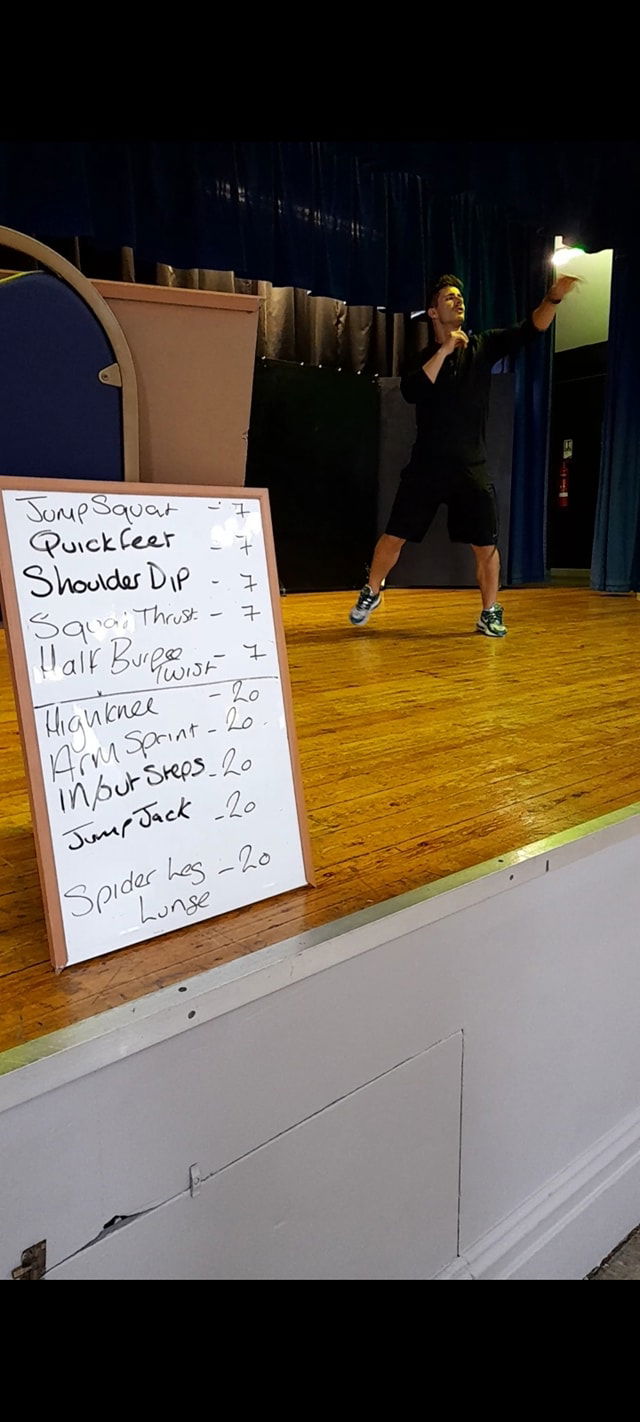 Jump Squat - 7
Quick feet - 7
Shoulder Dip - 7
Squat Thrust - 7
Half Burpee - 7
Twist
High knee - 20
Arm Sprint - 20
In/out Steps - 20
Jump Jack - 20
Spider Leg - 20
Lunge